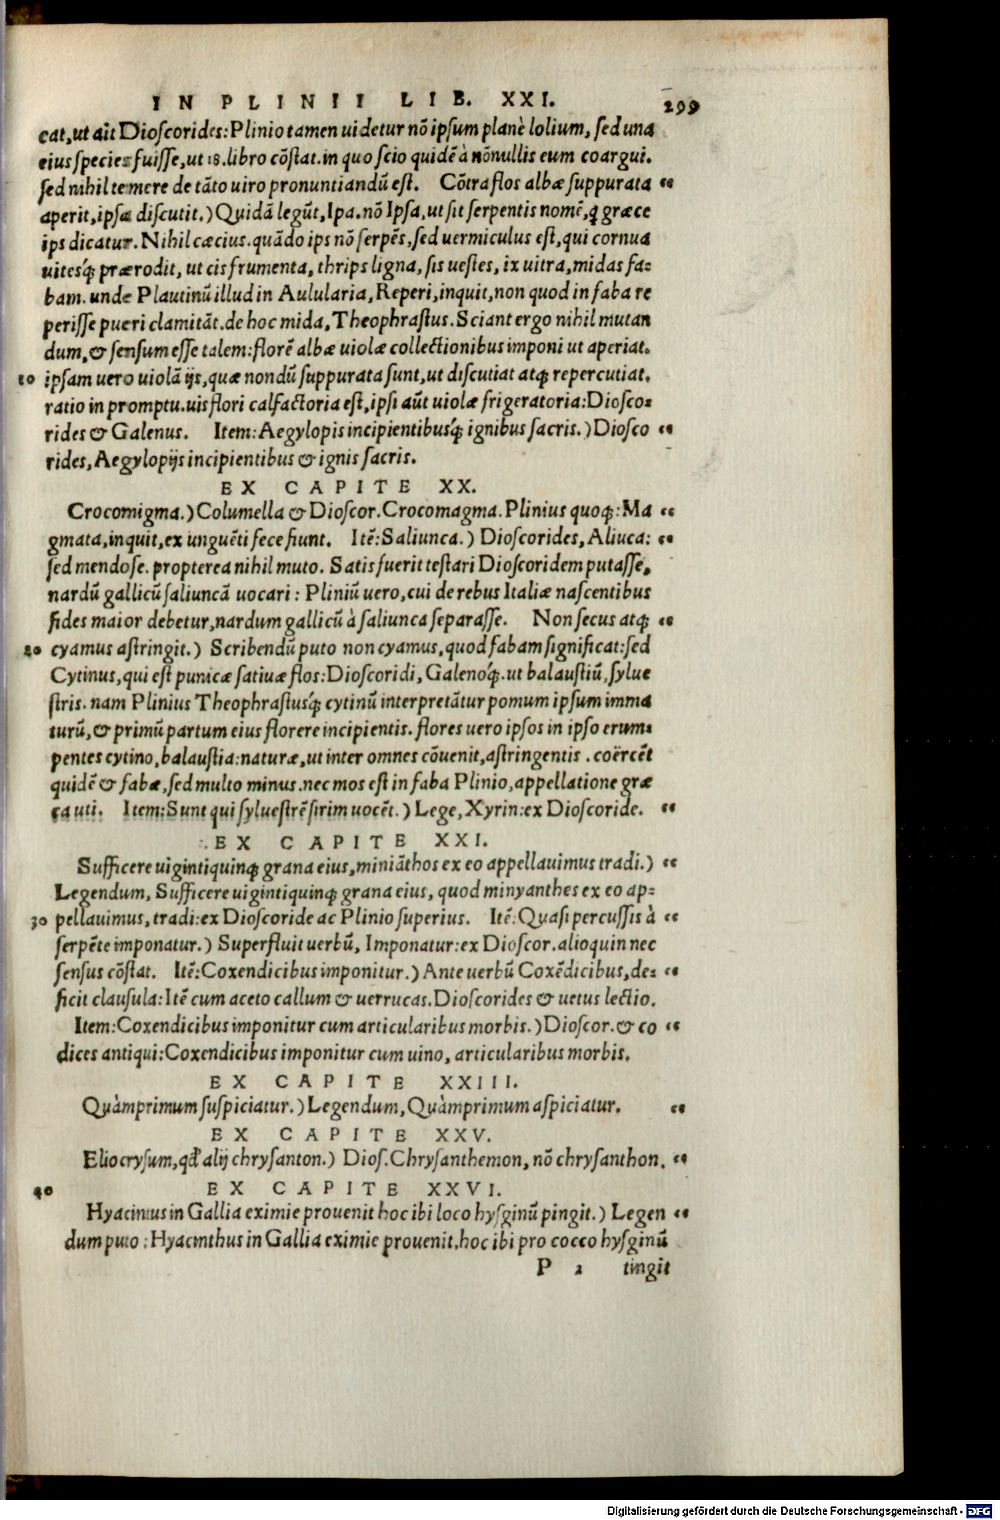 IN PLINII LIB. XXI. 299
cat, ut ait Dioſcorides: Plinio tamen uidetur nō ipſum planè lolium, ſed una
eius ſpecies fuiſſe, ut 18. libro cōſtat. in quo ſcio quidē à nōnullis eum coargui.
ſed nihil temere de tāto uiro pronuntiandū eſt. Cōtra flos albæ ſuppurata “
aperit, ipſa diſcutit.) Quidā legūt, Ipa. nō Ipſa, ut ſit ſerpentis nomē, ꝗ græce
ips dicatur. Nihil cæcius. quādo ips nō ſerpēs, ſed uermiculus eſt, qui cornua
uitesq́; prærodit, ut cis frumenta, thrips ligna, ſis ueſtes, ix uitra, midas fa-
bam. unde Plautinū illud in Aulularia, Reperi, inquit, non quod in faba re
periſſe pueri clamitāt. de hoc mida, Theophraſtus. Sciant ergo nihil mutan
dum, & ſenſum eſſe talem: florē albæ uiolæ collectionibus imponi ut aperiat.
10 ipſam uero uiolā ijs, quæ nondū ſuppurata ſunt, ut diſcutiat atq; repercutiat.
ratio in promptu. uis flori calfactoria eſt, ipſi aūt uiolæ frigeratoria: Dioſco-
rides & Galenus. Item: Aegylopis incipientibusq́; ignibus ſacris.) Dioſco “
rides, Aegylopijs incipientibus & ignis ſacris.
EX CAPITE XX.
Crocomigma.) Columella & Dioſcor. Crocomagma. Plinius quoq;: Ma “
gmata, inquit, ex unguēti fece fiunt. Itē: Saliunca.) Dioſcorides, Aliuca: “
ſed mendoſe. propterea nihil muto. Satis fuerit teſtari Dioſcoridem putaſſe,
nardū gallicū ſaliuncā uocari: Pliniū uero, cui de rebus Italiæ naſcentibus
fides maior debetur, nardum gallicū à ſaliunca ſeparaſſe. Non ſecus atq; “
20 cyamus aſtringit.) Scribendū puto non cyamus, quod fabam ſignificat: ſed
Cytinus, qui eſt punicæ ſatiuæ flos: Dioſcoridi, Galenoq́;. ut balauſtiū, ſylue
ſtris. nam Plinius Theophraſtusq́; cytinū interpretātur pomum ipſum imma
turū, & primū partum eius florere incipientis. flores uero ipſos in ipſo erum-
pentes cytino, balauſtia: naturæ, ut inter omnes cōuenit, aſtringentis. coërcēt
quidē & fabæ, ſed multo minus. nec mos eſt in faba Plinio, appellatione græ
ca uti. Item: Sunt qui ſylueſtrē ſirim uocēt.) Lege, Xyrin: ex Dioſcoride. “
EX CAPITE XXI.
Sufficere uigintiquinq; grana eius, miniāthos ex eo appellauimus tradi.) “
Legendum, Sufficere uigintiquinq; grana eius, quod minyanthes ex eo ap-
30 pellauimus, tradi: ex Dioſcoride ac Plinio ſuperius. Itē: Quaſi percuſſis à “
ſerpēte imponatur.) Superfluit uerbū, Imponatur: ex Dioſcor. alioquin nec
ſenſus cōſtat. Itē: Coxendicibus imponitur.) Ante uerbū Coxēdicibus, de- “
ficit clauſula: Itē cum aceto callum & uerrucas. Dioſcorides & uetus lectio.
Item: Coxendicibus imponitur cum articularibus morbis.) Dioſcor. & co “
dices antiqui: Coxendicibus imponitur cum uino, articularibus morbis.
EX CAPITE XXIII.
Quàmprimum ſuſpiciatur.) Legendum, Quàmprimum aſpiciatur. “
EX CAPITE XXV.
Eliocryſum, qd' alij chryſanton.) Dioſ. Chryſanthemon, nō chryſanthon. “
40 EX CAPITE XXVI.
Hyacintus in Gallia eximie prouenit hoc ibi loco hyſginū pingit.) Legen “
dum puto: Hyacinthus in Gallia eximie prouenit. hoc ibi pro cocco hyſginū
P 2 tingit
Digitalisierung gefördert durch die Deutsche Forschungsgemeinschaft - DFG